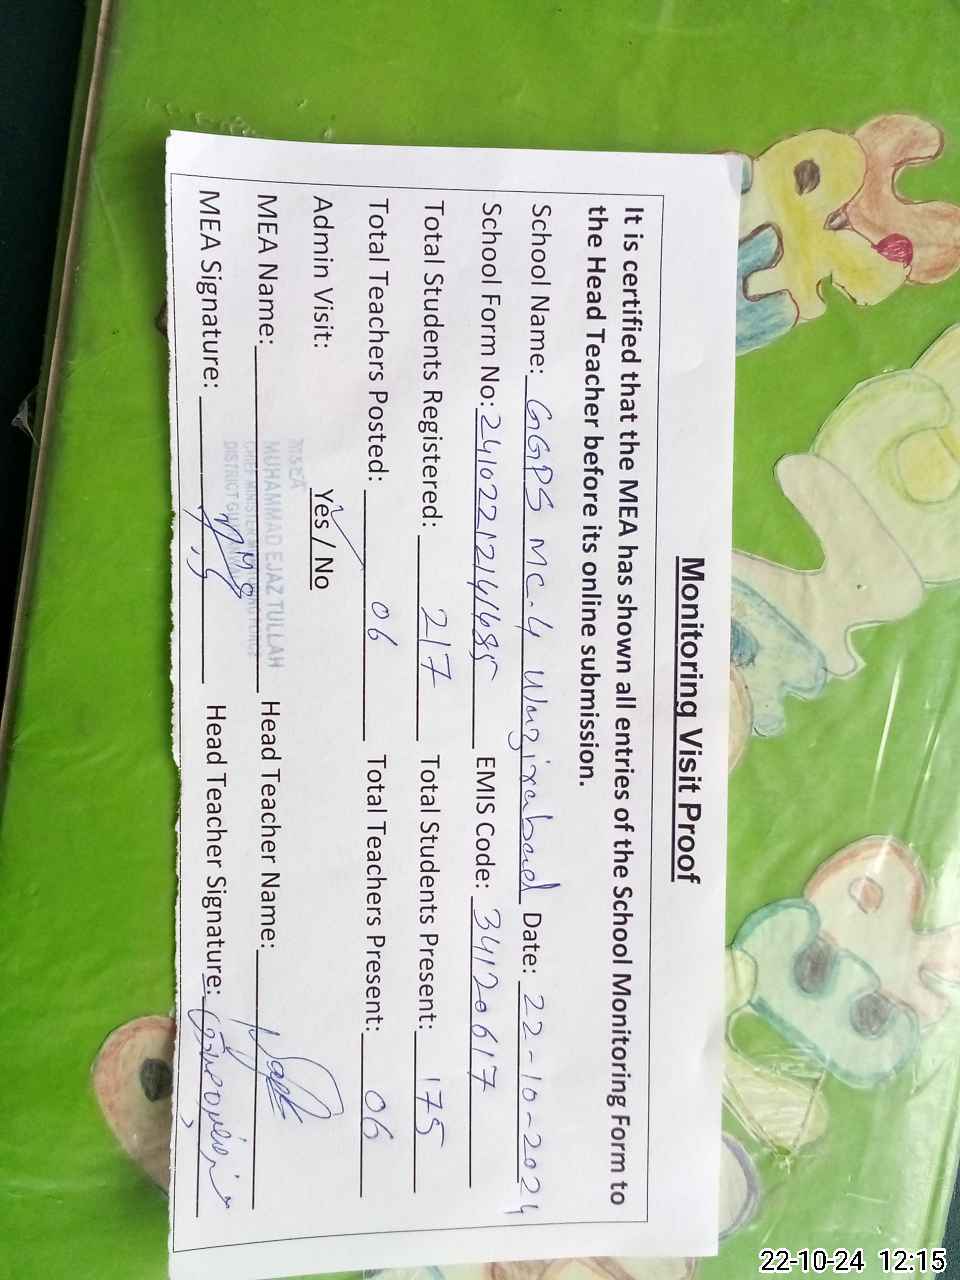 Monitoring Visit Proof
It is certified that the MEA has shown all entries of the School Monitoring Form to
the Head Teacher before its online submission.
School Name: GGPS MC.4 Wazirabad Date: 22-10-2024
School Form No: 2410221214485 EMIS Code: 34120617
Total Students Registered: 217 Total Students Present: 175
Total Teachers Posted: 06 Total Teachers Present: 06
Admin Visit: Yes / No
MEA
MUHAMMAD EJAZ TULLAH
MEA Name: Head Teacher Name:
MEA Signature: Head Teacher Signature:
22-10-24 12:15